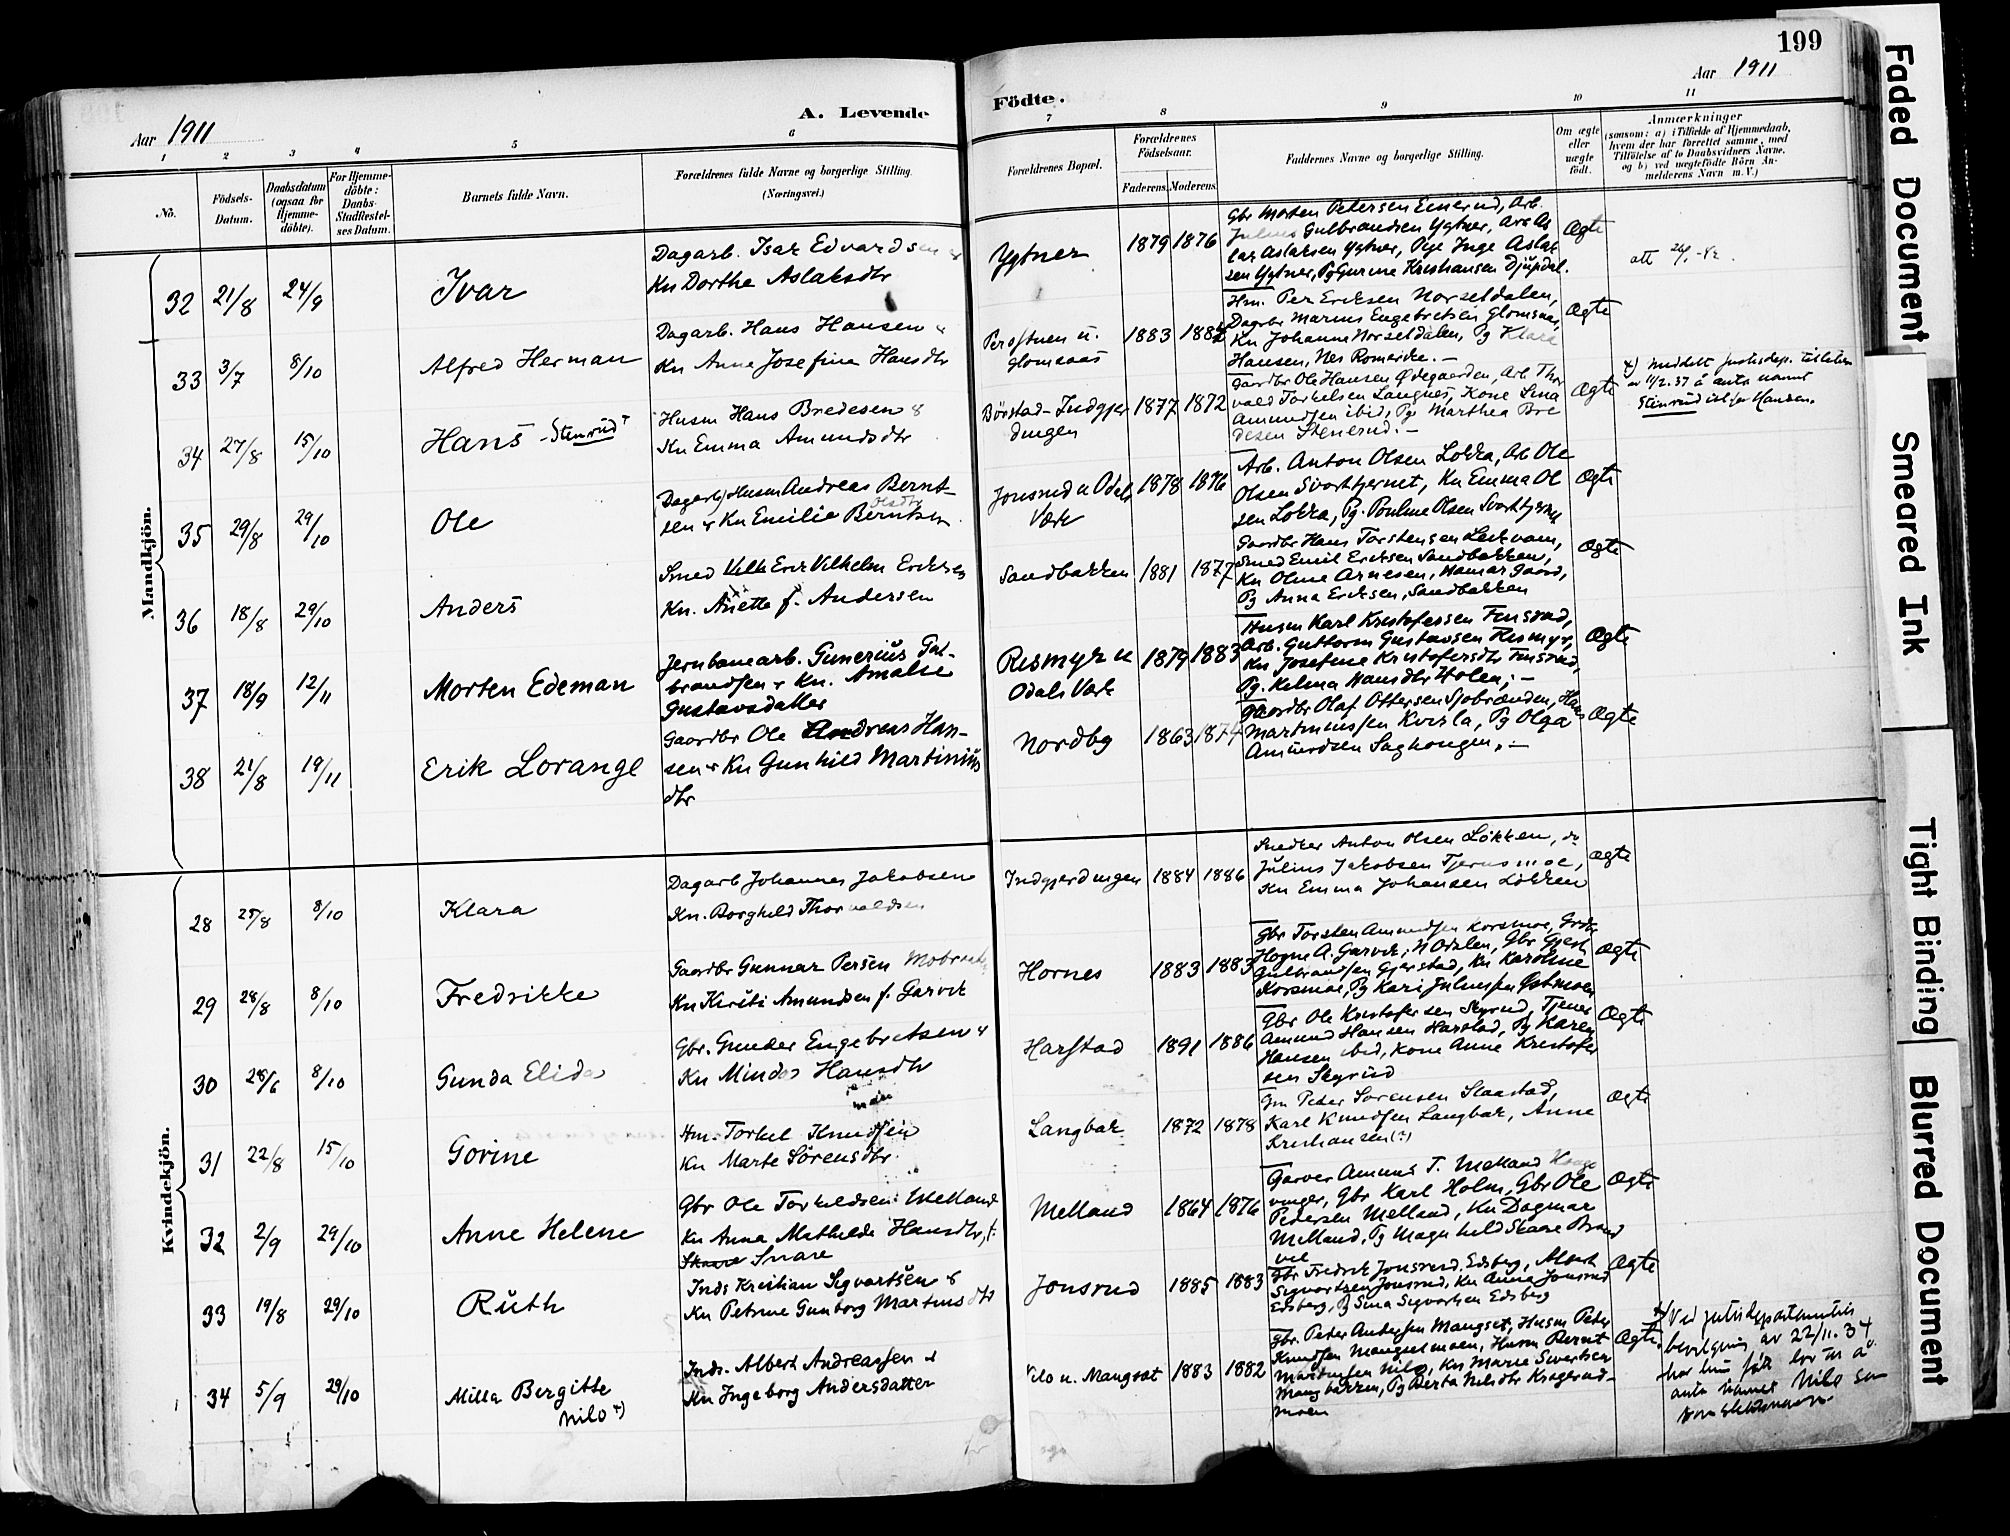 199
Aar 1911
A. Levende
Födte.
Aar 1911
1 2 3 4 5 6 7 8 9 10 11
No.
Födsels-Datum.
Daabsdatum (ogsaa for Hjemmedöbte).
For Hjemmedöbte: Daabs-Stadfestelses Datum.
Barnets fulde Navn.
Forældrenes fulde Navne og borgerlige Stilling.
(Næringsvei.)
Forældrenes Bopæl.
Forældrenes Födselsaar.
Faderens. Moderens.
Faddernes Navne og borgerlige Stilling.
Om ægte eller uægte födt.
Anmærkninger
(saasom: a) i Tilfælde af Hjemmedaab, hvem der har forrettet samme, med Tilföielse af to Daabsvidners Navne, og b) ved uægtefödte Börn Anmelderens Navn m. V.)
Mandkjön.
32 21/8 24/9 Ivar
Dagarb. Isak Edvardsen &
Kn Dorthe Aslaksdtr
Ygtner 1879 1876
Gbr Morten Petersen Einerud, Arb.
Julius Gulbrandsen Ygtner, Arb As
lak Aslaksen Ygtner, Pge Inge Aslak
sen Ygtner, Pg Gurine Kristiansen Djupdal.
Ægte
att
33 3/7 8/10 Alfred Herman
Dagarb. Hans Hansen &
Kn Anne Josefine Hansdtr
Perstuen u.
Glomsaas
1883
Hm. Per Eriksen Norseldalen,
Dagarb Marius Engebretsen Glomsaas,
Kn Johanne Norseldalen, Pg Klara
Hansen, Nes Romerike. —
Ægte
34 27/8 15/10 Hans - Stenrud
Husm Hans Bredesen &
Kn Emma Amundsdtr
Börstad-Indgjer
dingen
1877 1872
Gaardbr Ole Hansen Ødegaarden, Arb. Thor
vald Torkelsen Langnes, Kone Lina
Amundsen ibid, Pg Marthea Bre
desen Stenerud. —
Ægte
x) Meddelt justisdep. tillatelse
av 11/2.37 å anta navnet
Stenrud istf for Hansen.
35 29/8 29/10 Ole
Dagarb/Husm Andreas Bernt-
sen & Kn Emilie Berntsen
Olsdtr
Jonsrud u Odals
Værk
1878 1876
Arb. Anton Olsen Lokka, Arb Ole
Olsen Svarttjernet, Kn Emma Ol
sen Lokka, Pg. Pauline Olsen Svarttjernet
Ægte
36 18/8 29/10 Anders
Smed Erik Vilhelm Eriksen
Kn. Anette f. Andersen
Sandbakken 1881 1877
Gaardbr Hans Torstensen Leirvam,
Smed Emil Eriksen Sandbakken,
Kn Oline Arnesen, Hamar gaard,
Pg Anna Eriksen, Sandbakken
Ægte
37 18/9 12/11 Morten Edeman
Jernbanearb. Gunerius Gul-
brandsen & Kn. Amalie
Gustavsdatter
Rismyr u
Odals Værk
1879 1883
Husm Karl Kristofersen Finsrud,
Arb. Guttorm Gustavsen Rismyr,
Kn Josefine Kristofersdtr Finsrud,
Pg. Helma Hansdtr Holen; —
Ægte
38 21/8 19/11 Erik Lorange
Gaardbr Ole Andreas Han-
sen & Kn Gunhild Martinius
dtr
Nordby 1863 1874
Gaardbr Olaf Ottersen Sjøbrænden, Hans
Martinussen Kverla, Pg Olga
Amundsen Saghongen. —
Ægte
Kvindekjön.
28 25/8 8/10 Klara
Dagarb Johannes Jakobsen
Kn. Borghild Thorvaldsen
Indgjerdingen 1884 1886
Snedker Anton Olsen Løkken, do
Julius Jakobsen Tjernsmoe,
Kn Emma Johansen Løkken
Ægte
29 28/8 8/10 Fredrikke
Gaardbr Gunnar Persen
Kn Kirsti Amundsen f. Garvik
Hornes 1883 1883
Gbr Torsten Amundsen Korsmoe, Grdbr
Hogne A. Garvik, N Odalen, Gbr Gjert
Gulbrandsen Gjerstad, Kn Karoline
Korsmoe, Pg Kari Juliussen Østmoen
Ægte
30 28/6 8/10 Gunda Elida
Gbr. Gunder Engebretsen &
Kn Minda Hansdtr
Harstad 1891 1886
Gbr Ole Kristofersen Skyrud, Tjener
Amund Hansen Harstad, Pg Karen
Hansen ibid, Kone Anne Kristofer
sen Skyrud
Ægte
31 22/8 15/10 Gorine
Hm. Torkel Knudsen
Kn Marte Sörensdtr
Langbak 1872 1878
Gm Peder Sörensen Slaastad,
Karl Knudsen Langbak, Anne
Kristiansen (?)
Ægte
32 2/9 29/10 Anne Helene
Gbr Ole Torkildsen Melland
Kn Anna Mathilde Hansdtr, f.
Skaare Snare
Melland 1864 1876
Garver Amund T. Melland Kongs
vinger, Gbr Karl Holm, Gbr Ole
Pedersen Melland, Kn Dagmar
Melland, Pg Magnhild Skaare Brand
vol
Ægte
33 19/8 29/10 Ruth
Inds Kristian Sigvartsen &
Kn Petrine Gunborg Martinsdtr
Jonsrud 1885 1883
Gbr Fredrik Jonsrud, Edsberg, Albert
Sigvartsen Jonsrud, Kn Anna Jonsrud
Edsberg, Pg Sina Sigvartsen Edsberg
Ægte
34 5/9 29/10 Milla Bergitte
Nilo x)
Inds. Albert Andreassen &
Kn Ingeborg Andersdatter
Nilo u. Mangset 1883 1882
Gbr. Peter Andersen Mangset, Husm Peter
Knudsen Mangsetmoen, Husm Bernt
Martinsen Nilo, Kn Marie Sivertsen
Mangbakken, Pg Berta Nilsdtr Kragerud-
moen
Ægte
x) Ved justisdepartementets
bevilgning av 22/11.34
har hun fått lov til å
anta navnet Nilo som
slektsnavn.
Faded Document
Smeared Ink
Tight Binding
Blurred Document